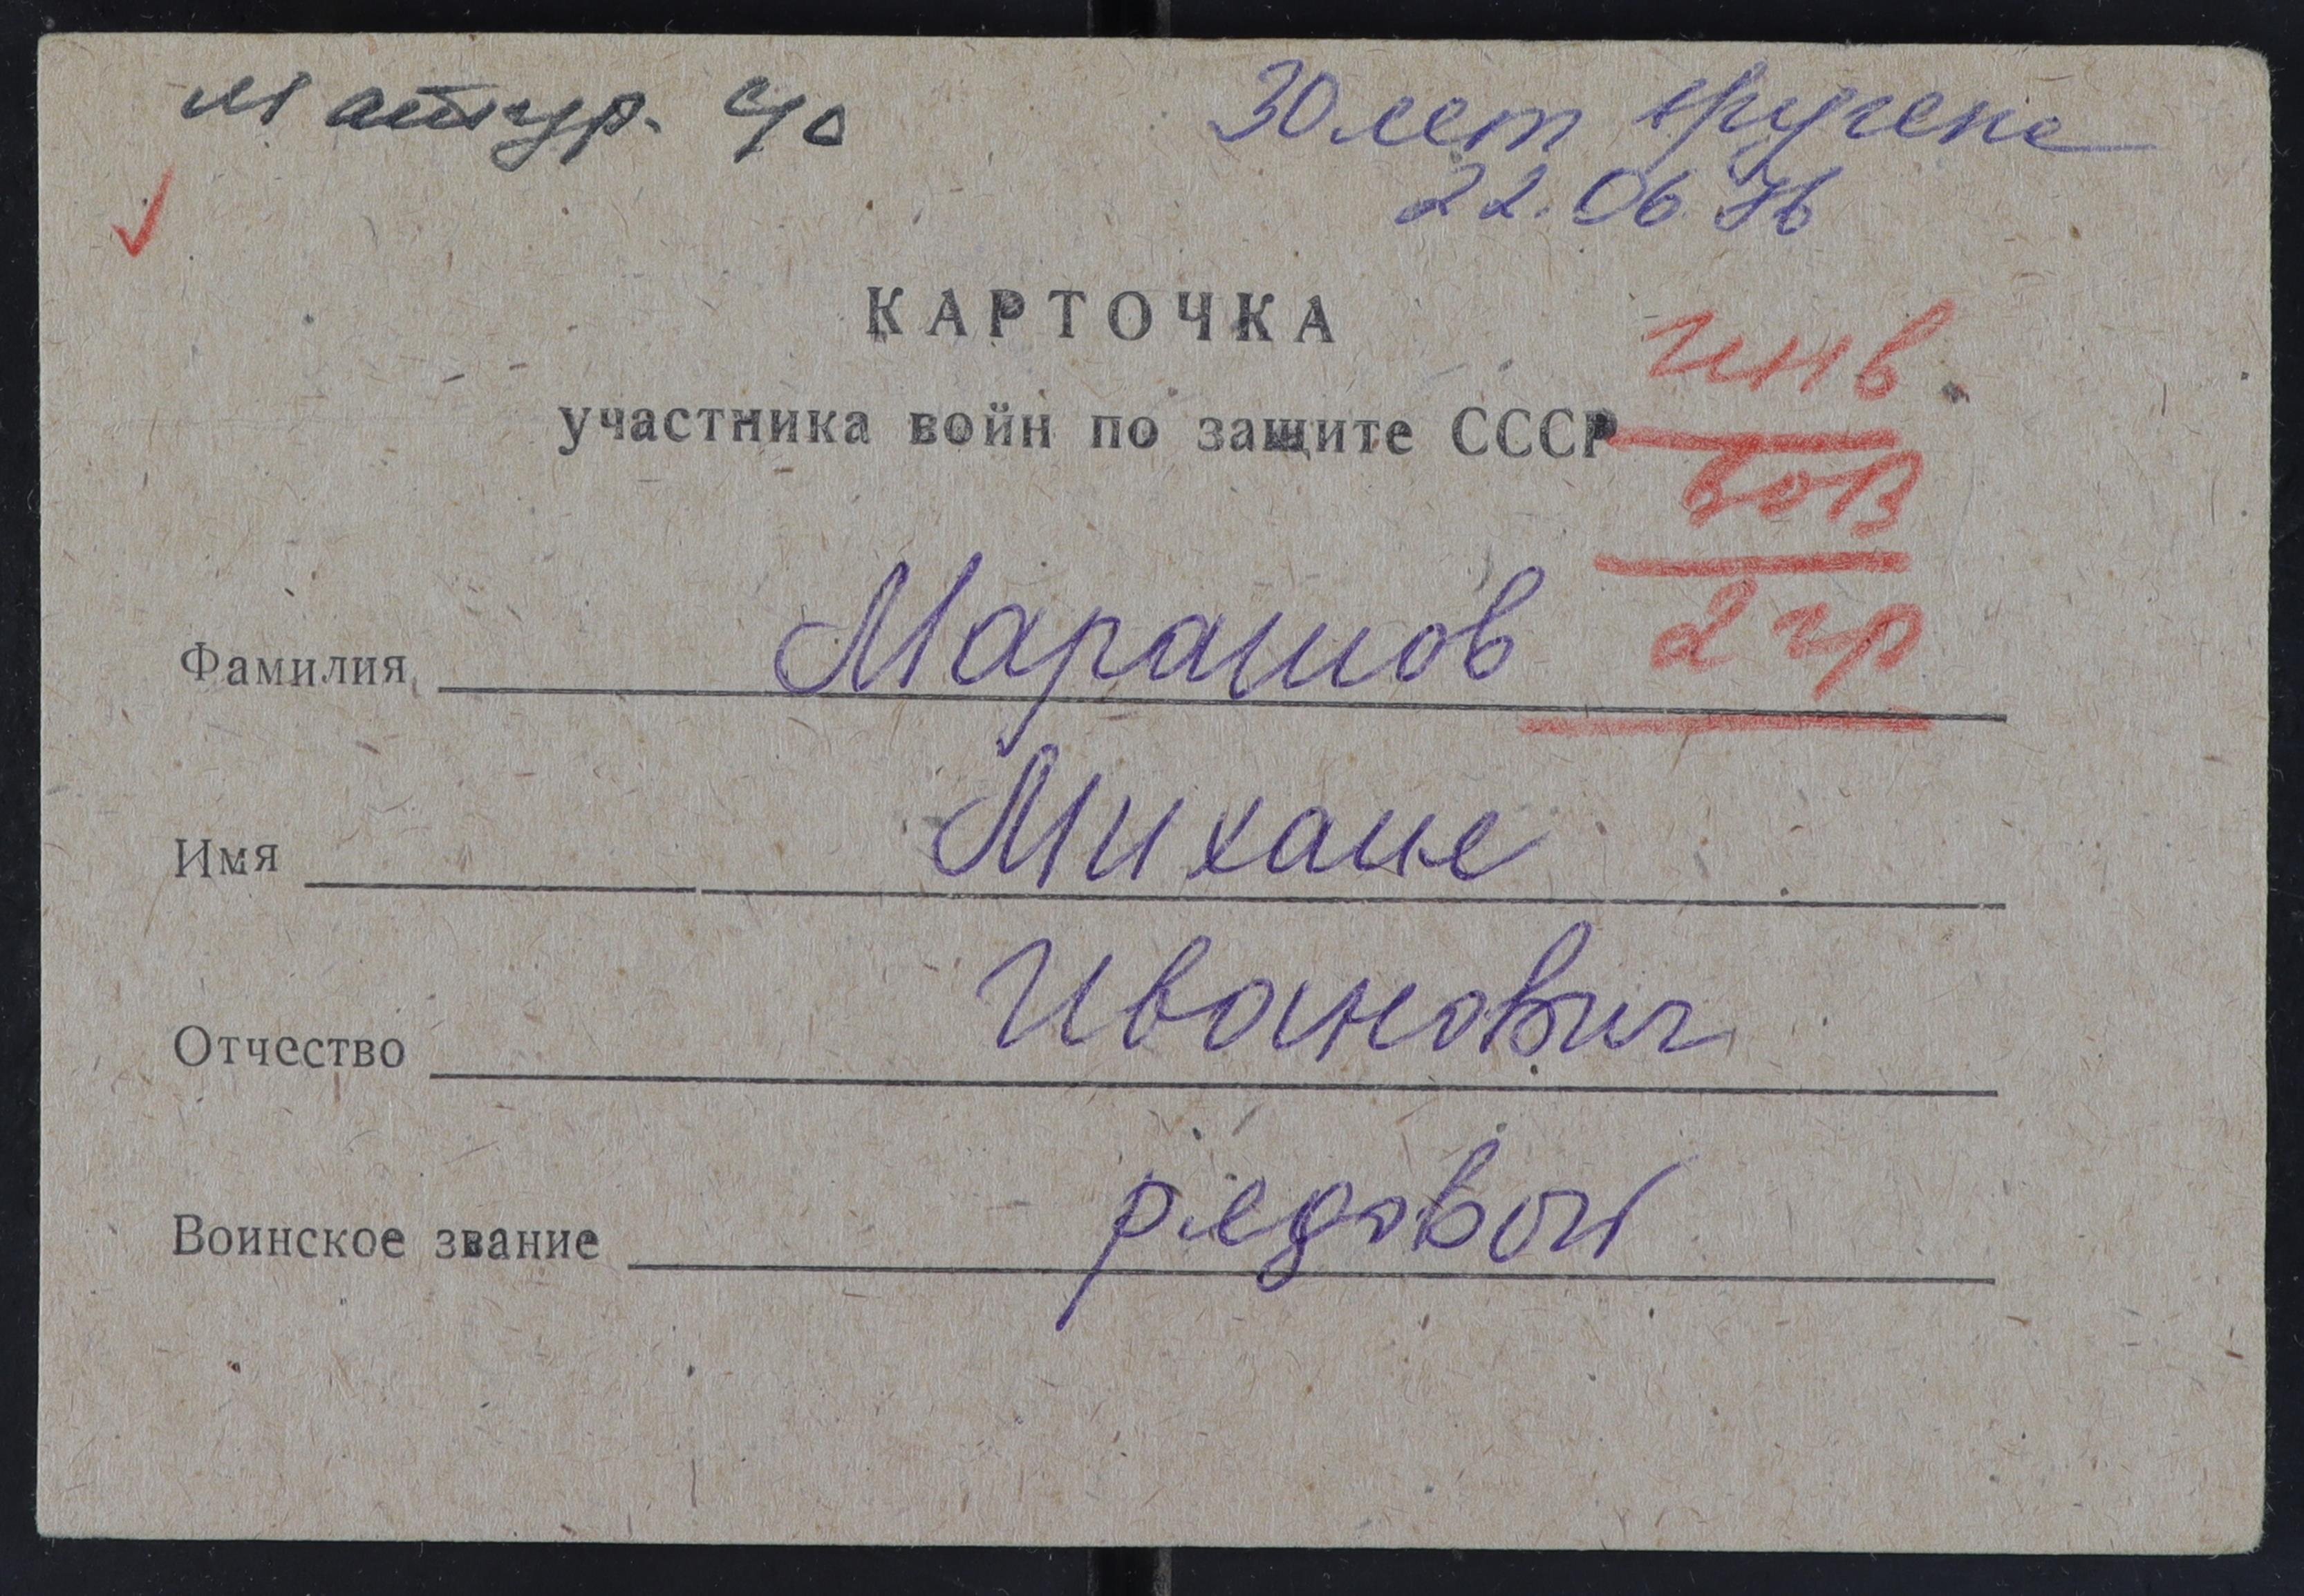 Матур. с/о
30 лет вручена
22.06 76
КАРТОЧКА
участника войн по защите СССР
инв
ВОВ
2 гр
Фамилия Марашов
Имя Михаил
Отчество Иванович
Воинское звание рядовой